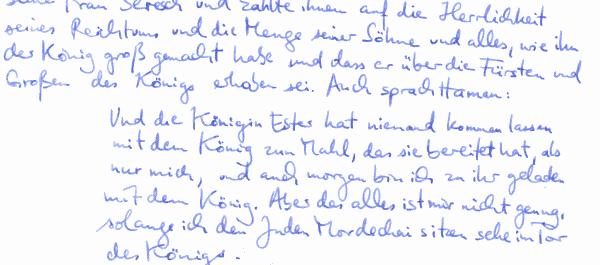 seine Frau Seresch und zählte ihnen auf die Herrlichkeit
seines Reichtums und die Menge seiner Söhne und alles, wie ihn
der König groß gemacht habe und dass er über die Fürsten und
Großen des Königs erhoben sei. Auch sprach Haman:
Und die Königin Ester hat niemand kommen lassen
mit dem König zum Mahl, das sie bereitet hat, als
nur mich, und auch morgen bin ich zu ihr geladen
mit dem König. Aber das alles ist mir nicht genug,
solange ich den Juden Mordechai sitzen sehe im Tor
des Königs.